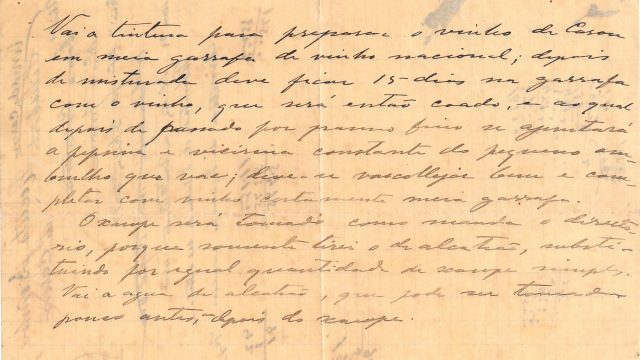 Vai a tintura para preparar o vinho de
em meia garrafa de vinho nacional; depois
de misturada deve ficar 15 dias na garrafa
com o vinho, que será então coado, e ao qual
depois de passado por panno fino se ajuntará
a pepsina e constante do pequeno em-
brulho que vae; deve-se vascollejar bem e com-
pletar com vinho meia garrafa.
O xarope será tomado como manda o directo-
rio, porque somente tirei o de alcatrão, substi-
tuindo por egual quantidade de xarope simples.
Vai a agua de alcatrão, que pode ser tomada
pouco antes, depois do xarope.